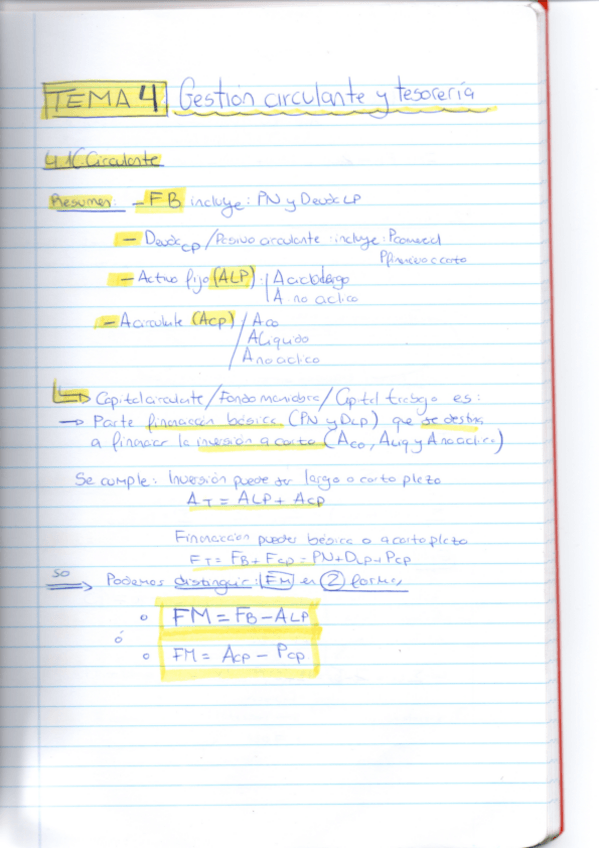 TEMA 4: Gestión circulante y tesorería
4.1 Circulante
Resumen: - FB incluye: PN y Deuda LP
- Deuda CP / Pasivo circulante: incluye: Pcomercial
Pfinanciero corto
- Activo fijo (ALP): A ciclo largo
A no cíclico
- A circulante (ACP) / Aco
/ A Líquido
/ A no cíclico
Capital circulante / Fondo maniobra / Capital trabajo es:
→ Parte financiación básica (PN y DLP) que se destina
a financiar la inversión a corto (Aco, ALiq y A no cíclico)
Se cumple: Inversión puede ser largo o corto plazo
AT = ALP + ACP
Financiación puede básica o a corto plazo
FT = FB + FCP = PN + DLP + PCP
SO Podemos distinguir: FM en 2 formas
FM = FB - ALP
ó
FM = ACP - PCP